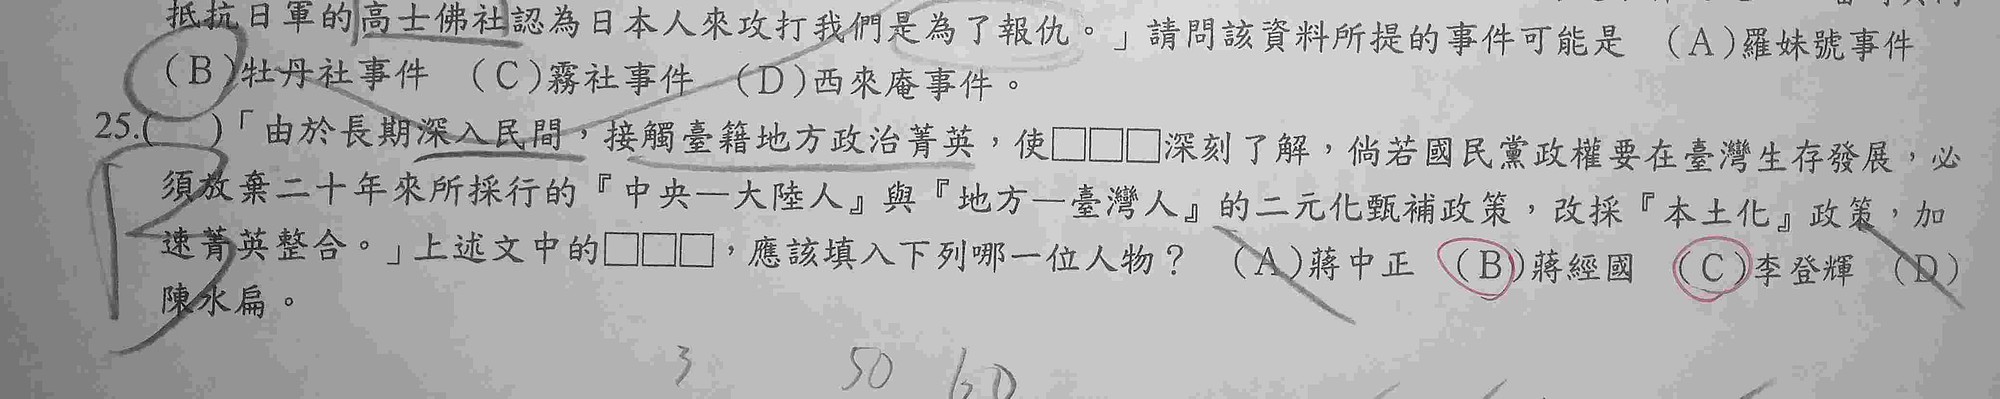 抵抗日軍的高士佛社認為日本人來攻打我們是為了報仇。」請問該資料所提的事件可能是 (A)羅妹號事件
(B)牡丹社事件 (C)霧社事件 (D)西來庵事件。
25.( )「由於長期深入民間,接觸臺籍地方政治菁英,使□□□深刻了解,倘若國民黨政權要在臺灣生存發展,必
須放棄二十年來所採行的『中央—大陸人』與『地方—臺灣人』的二元化甄補政策,改採『本土化』政策,加
速菁英整合。」上述文中的□□□,應該填入下列哪一位人物? (A)蔣中正 (B)蔣經國 (C)李登輝 (D)
陳水扁。
3 50 60